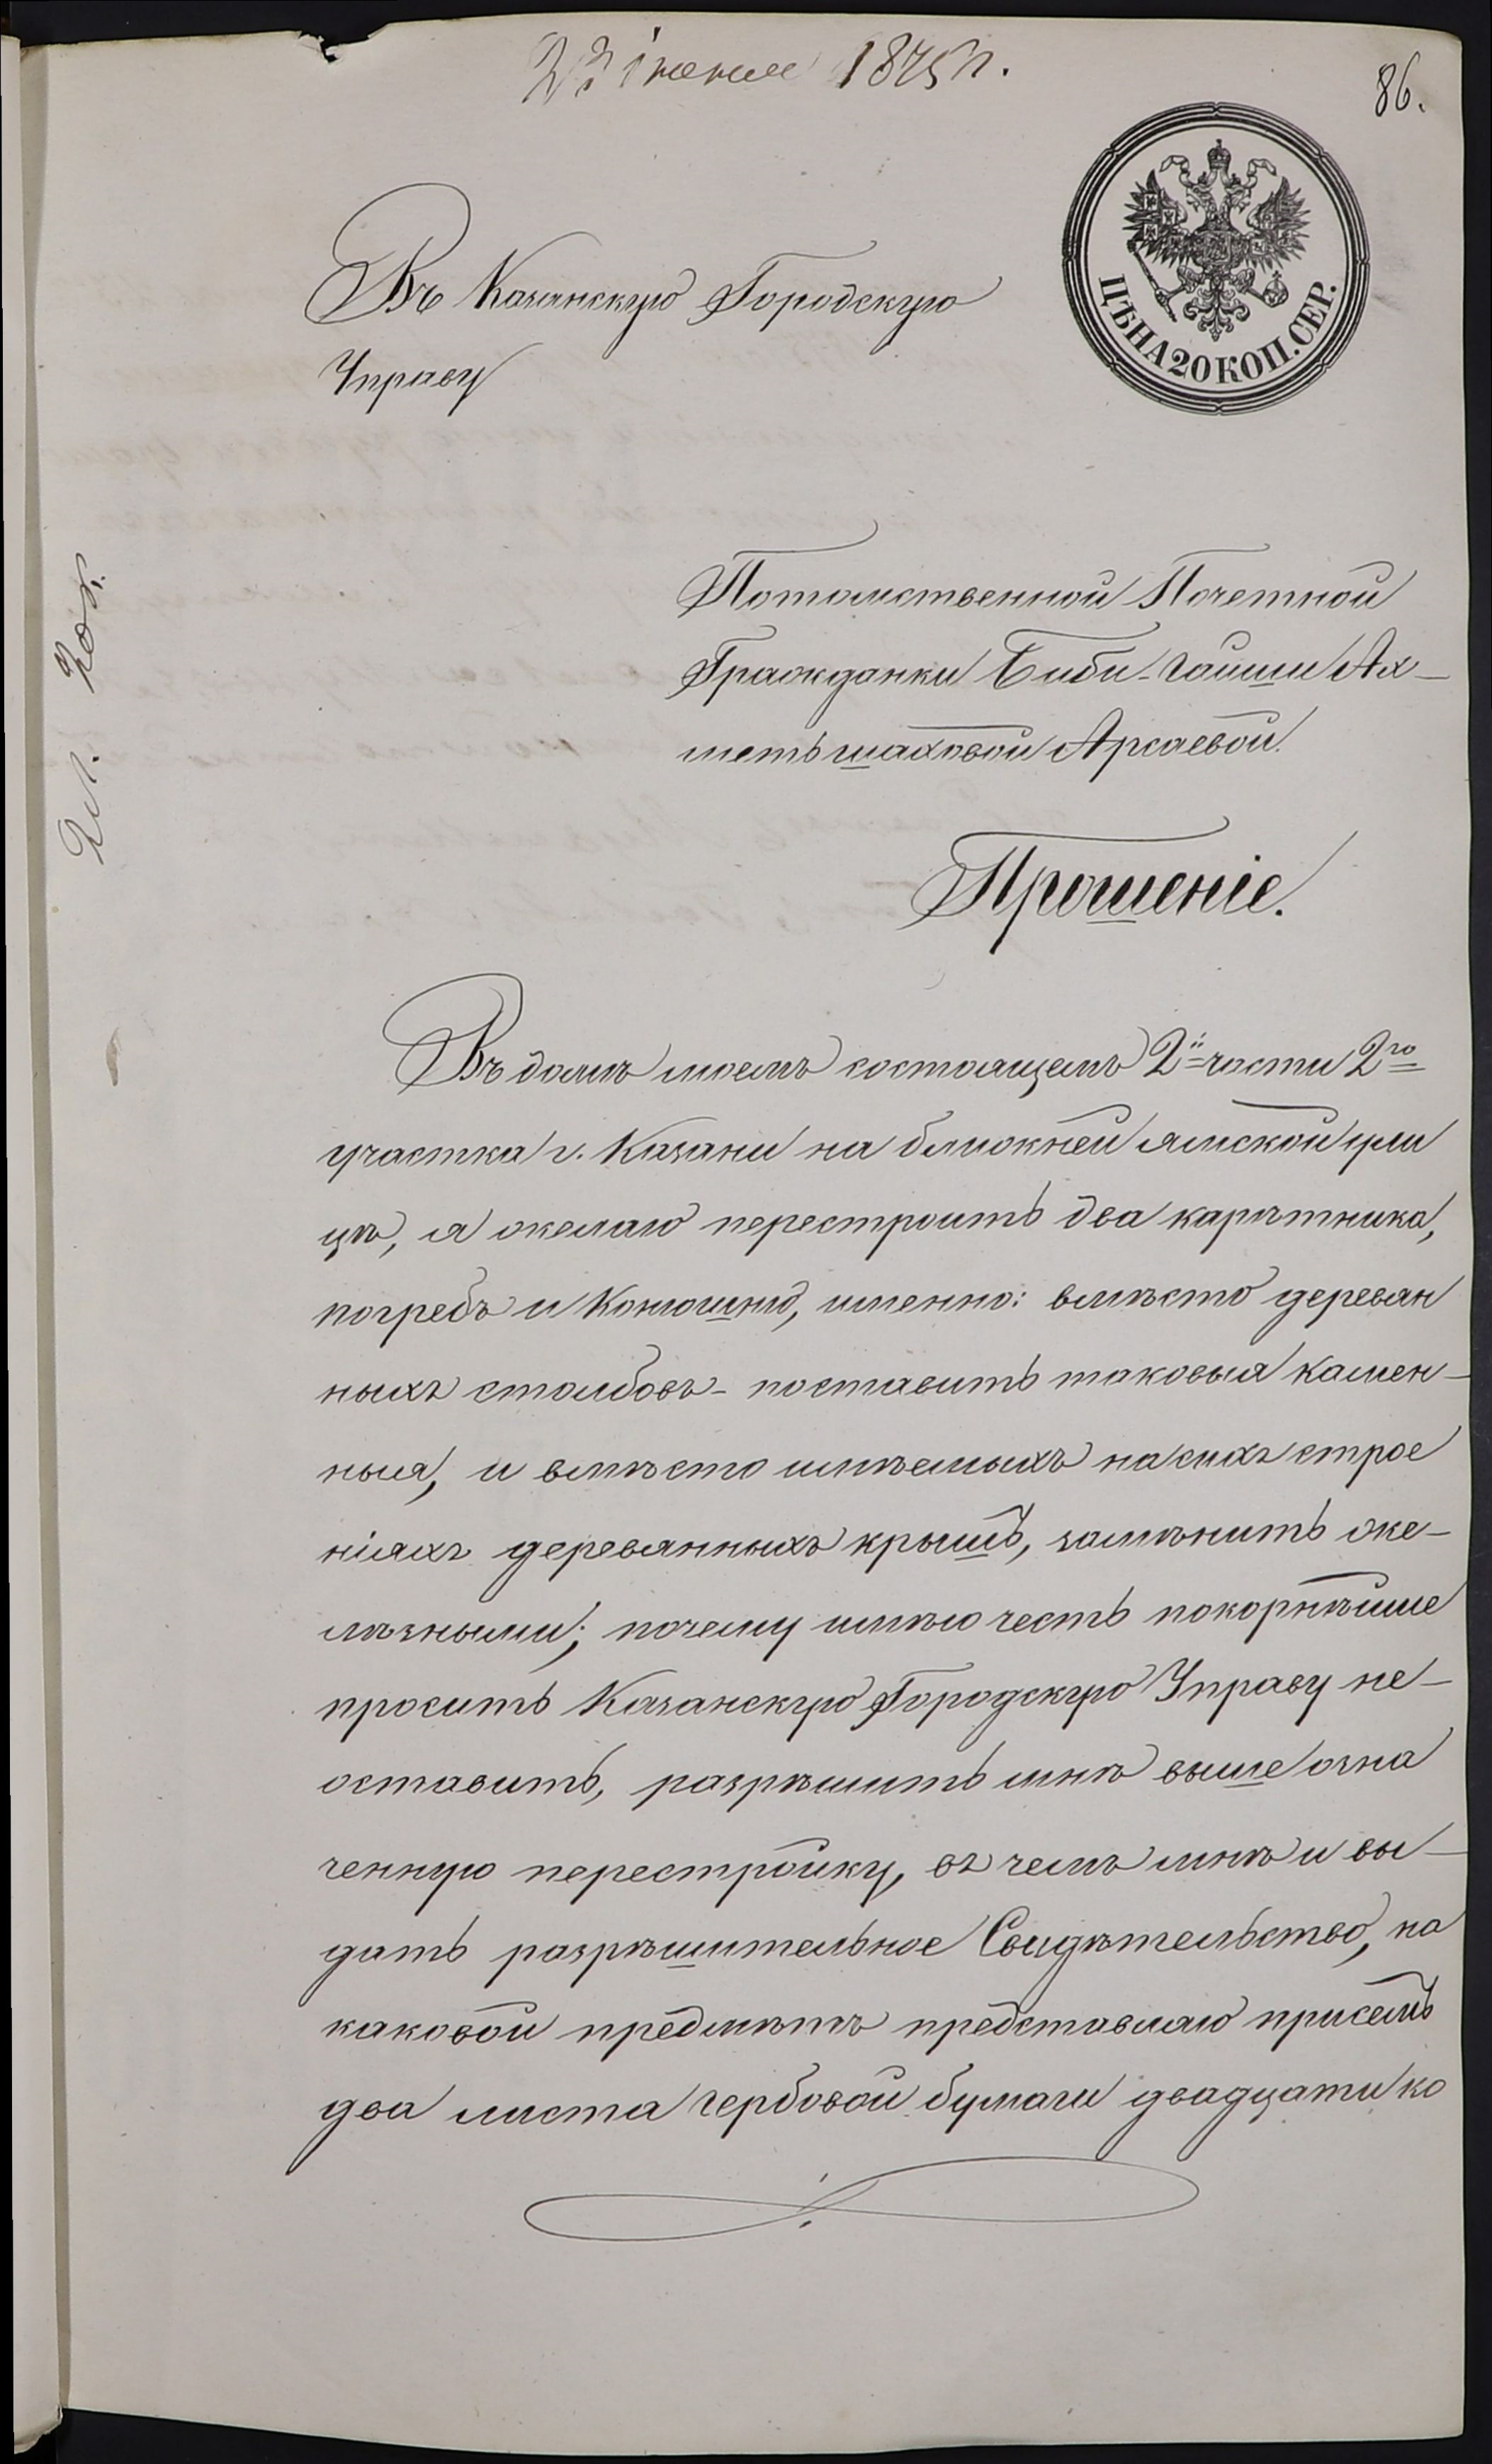 23 іюня 1875 г.
86.
ЦѢНА 20 КОП. СЕР.
Въ Казанскую Городскую
Управу
Потомственной Почетной
Гражданки Биби-Гайши Ах-
метьшаховой Арсаевой.
Прошеніе.
Въ домѣ моемъ состоящемъ 2й части 2го
участка г. Казани на ближней ямской ули
цѣ, я желаю перестроить два каретника,
погребъ и конюшню, именно: вмѣсто деревян
ныхъ столбовъ - поставить таковыя камен-
ныя, и вмѣсто имѣемыхъ на сихъ строе
ніяхъ деревянныхъ крышъ, замѣнить же-
лѣзными; почему имѣю честь покорнѣйше
просить Казанскую Городскую Управу не-
оставить, разрѣшить мнѣ выше озна
ченную перестройку, въ чемъ мнѣ и вы-
дать разрѣшительное Свидѣтельство, на
каковой предмѣтъ представляю присемъ
два листа гербовой бумаги двадцати ко